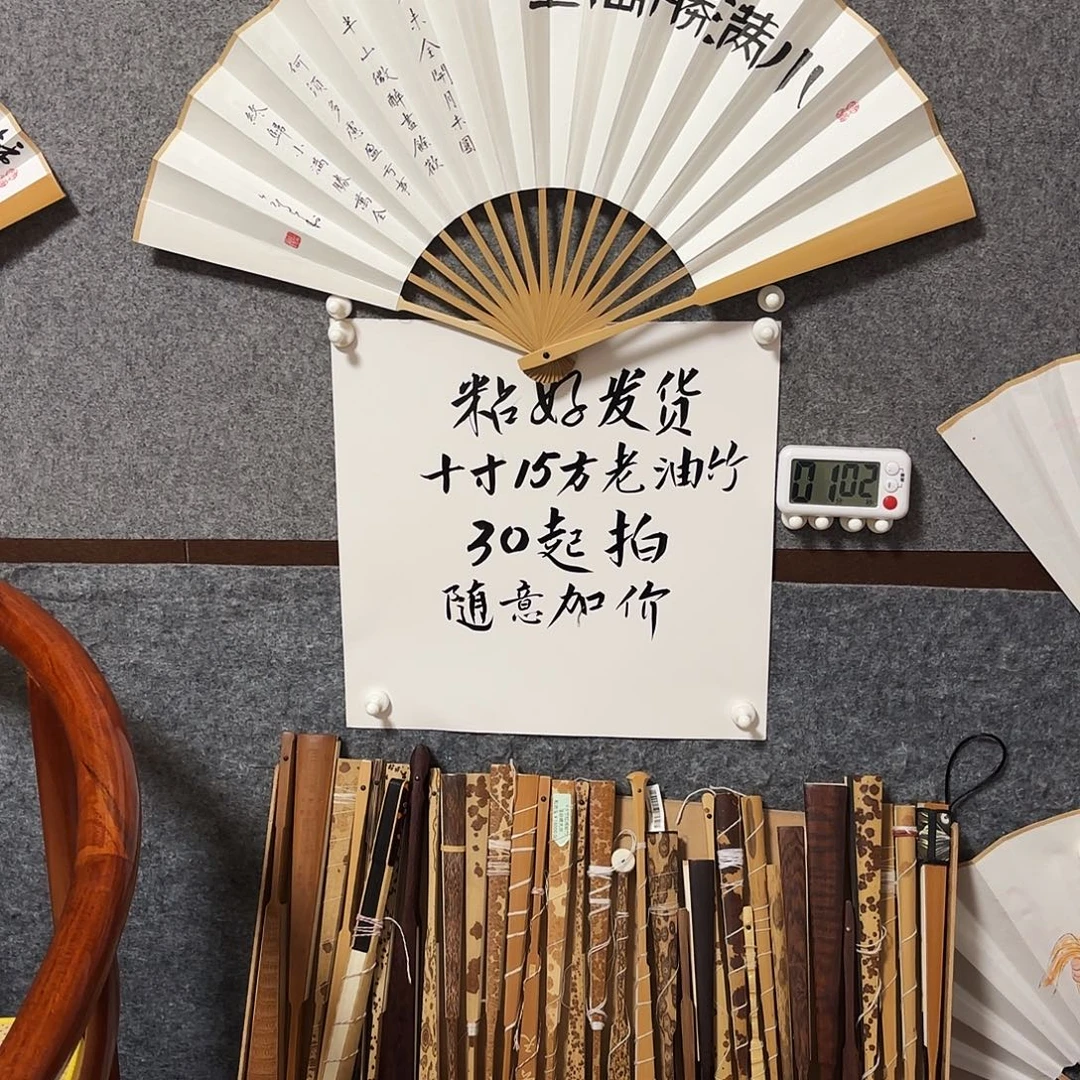 小满胜
未全開月未圓
半山微醉盡餘歡
何須多慮盈亏事
終歸小滿勝萬全
粘好发货
十寸15方老油竹
30起拍
随意加价
0102